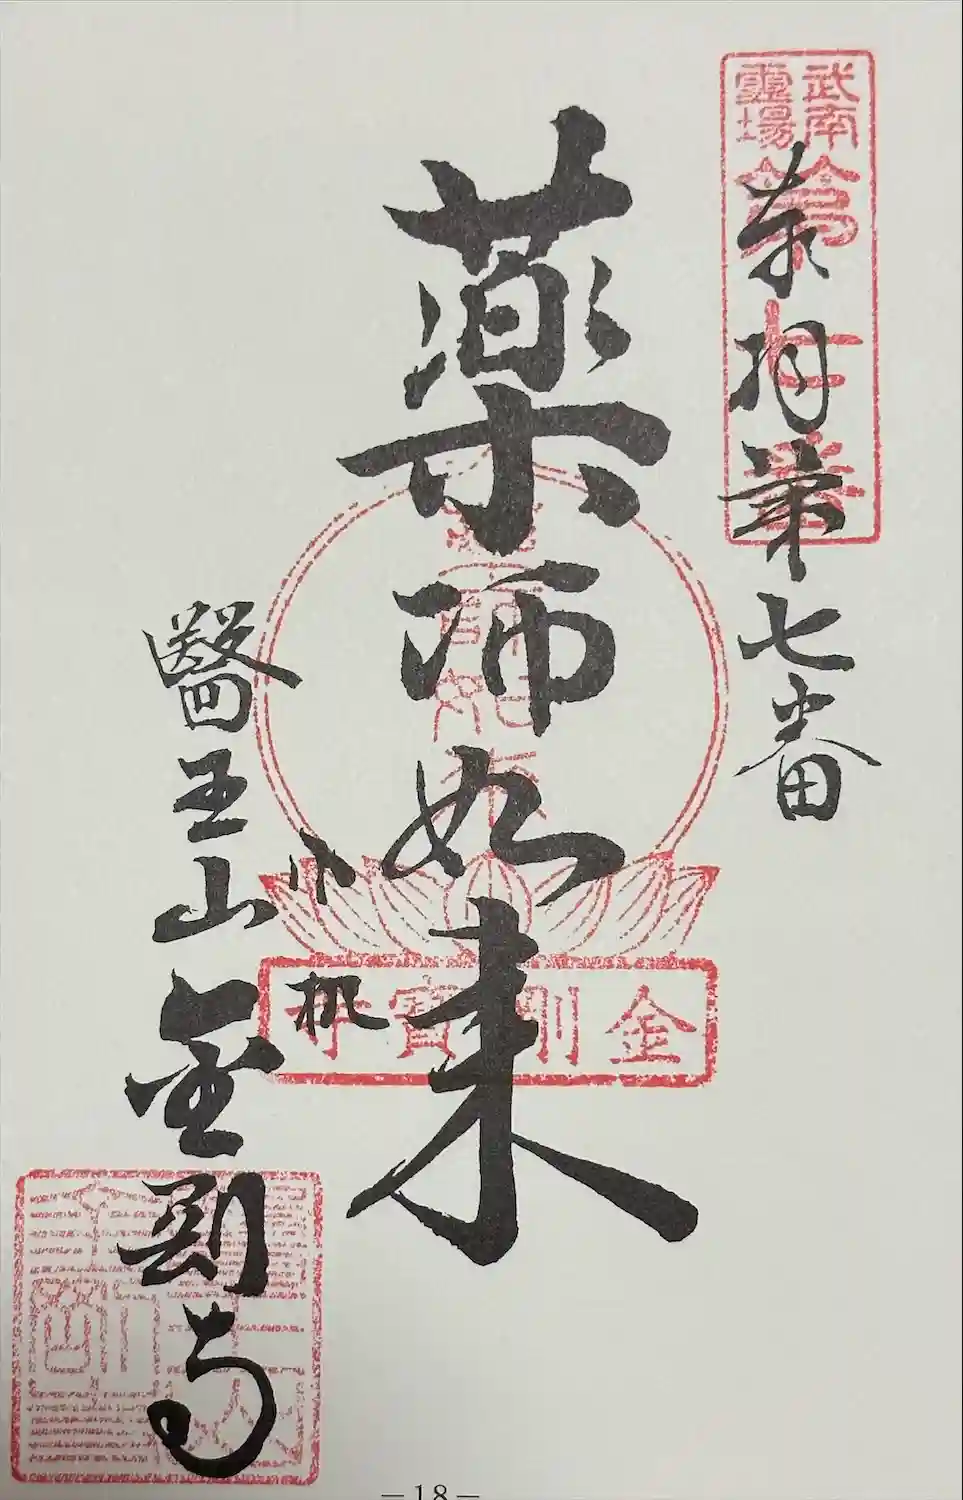 武南
靈場
第
七
番
奉拝 第七番
薬師如来
小机
醫王山 金剛寺
金剛寶寺
－18－